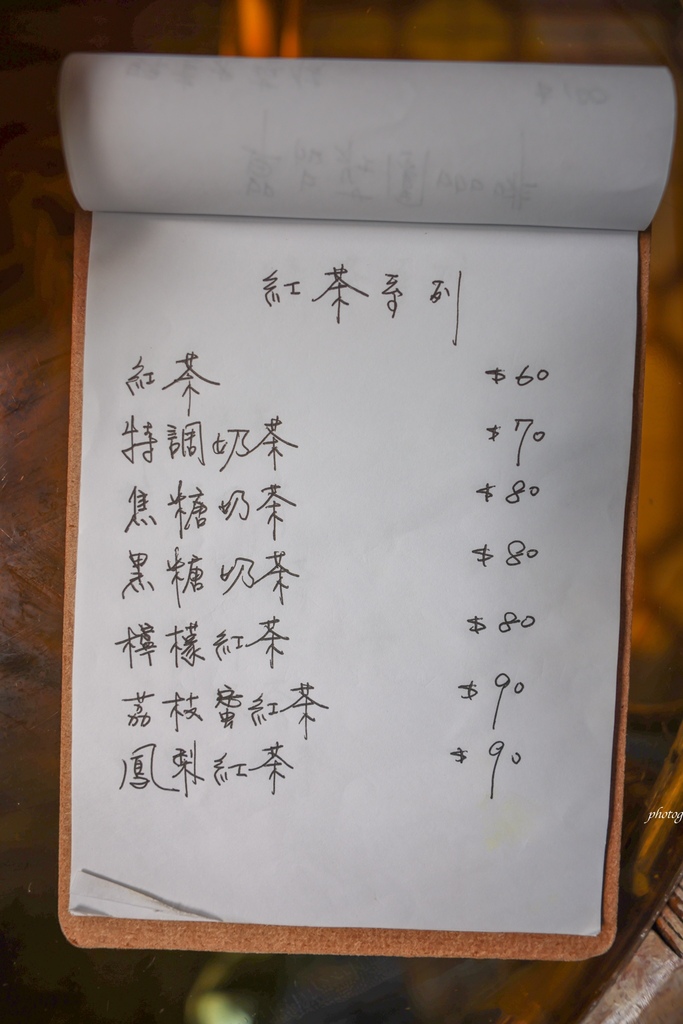 紅茶系列
紅茶 $60
特調奶茶 $70
焦糖奶茶 $80
黑糖奶茶 $80
檸檬紅茶 $80
荔枝蜜紅茶 $90
鳳梨紅茶 $90
photog